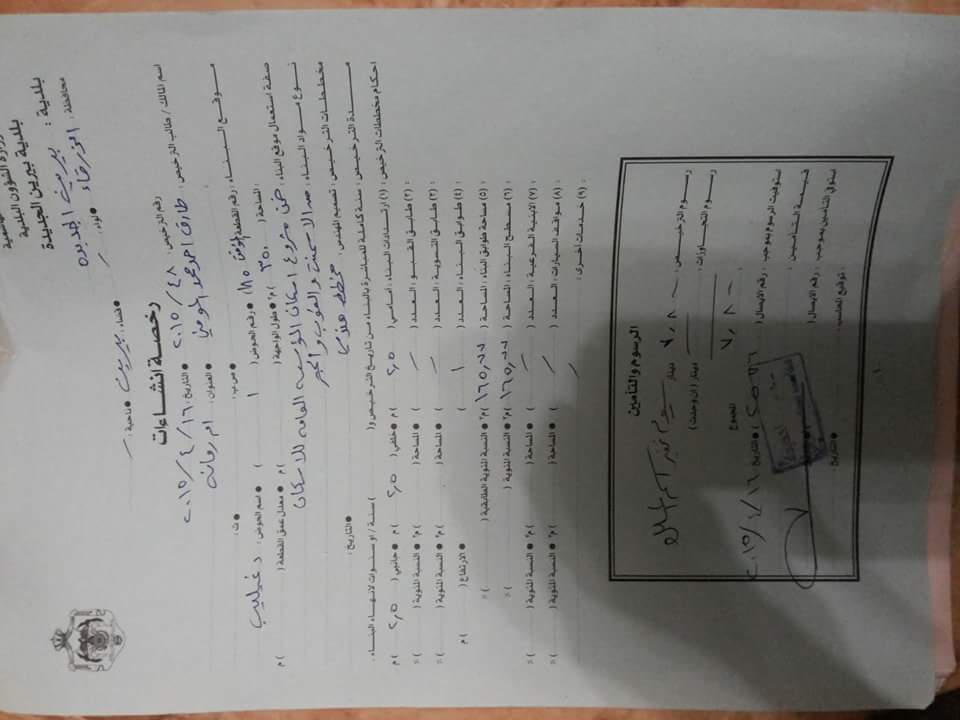 وزارة الشؤون البلدية
بلدية بيرين الجديدة
بلدية : بيرين الجديدة
محافظة : الزرقاء ● لواء : ● قضاء : بيرين ● ناحية :
رخصة انشاءات
رقم الترخيص : ٢٠١٥/٤٨ ● التاريخ : ٢٠١٥/٤/١٦
اسم المالك / طالب الترخيص : طارق احمد محمد المومني ● العنوان : ام رمانه ● ص.ب : ● ت :
موقع البناء : رقم القطعة ١٨٥ ● رقم الحوض ( ١ ) ● اسم الحوض : دغليب
● المساحة ( ٣٥٠ ) م٢ ● طول الواجهة ( ) م ● معدل عمق القطعة ( ) م
صفة استعمال موقع البناء : ضمن مشروع اسكان المؤسسه العامه للاسكان
نوع مواد البناء : من الاسمنت والطوب والحجر
مخططات الترخيص : تصميم المهندس : ● التاريخ :
مدة الترخيص : سنة كاملة للمباشرة بالبناء من تاريخ الترخيص و( ) سنة / او سنوات لانهاء البناء .
احكام مخططات الترخيص : (١) ارتدادات البناء : امامي ( ٢,٥ ) م خلفي ( ٢,٥ ) م ● جانبي ( ٢,٥ ) م
: (٢) طابق القبو : العدد ( ) ● المساحة ( ) م٢ ● النسبة المئوية ( ) %
: (٣) طابق التسوية : العدد ( ) ● المساحة ( ) م٢ ● النسبة المئوية ( ) %
: (٤) طوابق البناء : العدد ( ١ ) ● الارتفاع ( ) م
: (٥) مساحة طوابق البناء : المساحة ( ١٦٥,٧٧ ) م٢ ● النسبة المئوية الطابقية ( ) %
: (٦) مسطح البناء : المساحة ( ١٦٥,٧٧ ) م٢ ● النسبة المئوية ( ) %
: (٧) الابنية الفرعية : العدد ( ) ● المساحة ( ) م٢ ● النسبة المئوية ( ) %
: (٨) مواقف السيارات : العدد ( ) ● المساحة ( ) م٢ ● النسبة المئوية ( ) %
: (٩) خدمات اخرى :
الرسوم والتأمين
رسوم الترخيص : ٧٠٨ دينار
رسوم التجاوزات : دينار ( ان وجدت )
٧٠٨ المجموع
استوفيت الرسوم بموجب : رقم الايصال ( ) ● التاريخ ٢٠١٥/٤/١٦
قيمة التأمين :
استوفي التأمين بموجب : رقم الايصال ( )
: توقيع المحاسب : ● التاريخ :